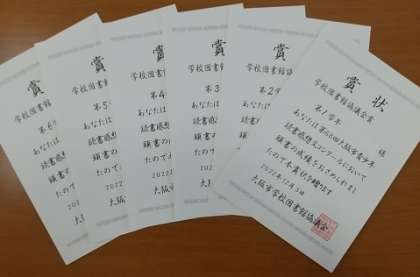 賞状
学校図書館協議会賞
第1学年
様
あなたは第68回大阪市青少年
読書感想文コンクールにおいて
頭書の成績をおさめられまし
たので本賞状を贈呈します
2022年12月3日
大阪市学校図書館協議会
賞
学校図書館協議
第2学
あなたは
読書感想
頭書の
たので
2022
大阪
賞
学校図書館
第3
あなた
読書感
頭書の
たので
2022
大阪
賞
学校図書館
第4
あなた
読書感
頭書の
たので
2022
大阪
賞
学校図書
第5
あなた
読書感
頭書の
たので
大阪
賞
学校図書館
第6
あなた
読書感想
頭書の
たので
大阪